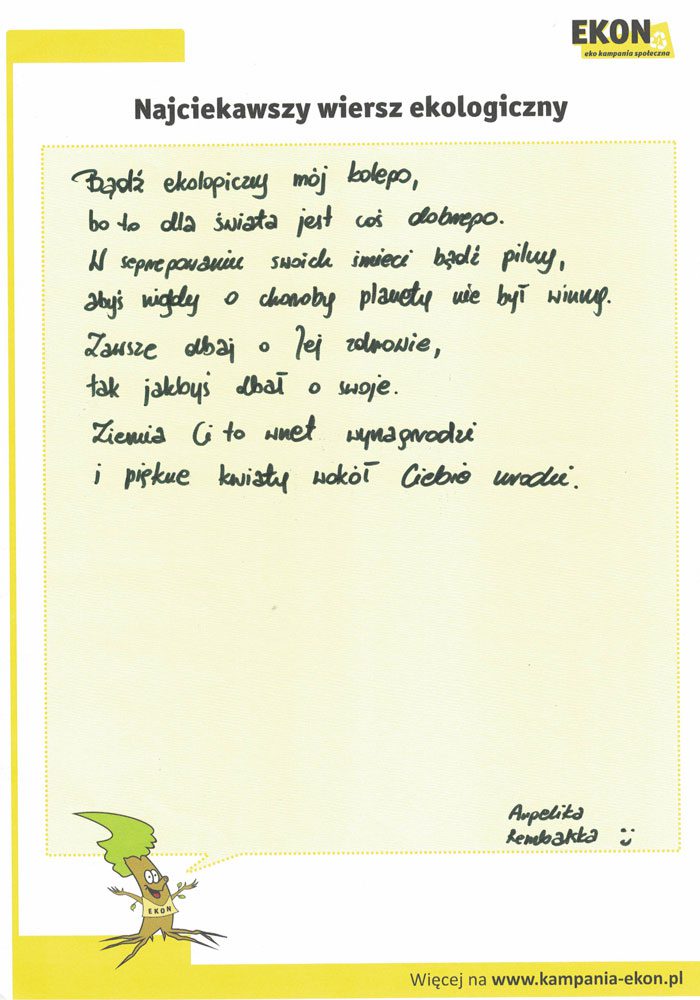 EKON
eko kampania społeczna
Najciekawszy wiersz ekologiczny
Bądź ekologiczny mój kolego,
bo to dla świata jest coś dobrego.
W segregowaniu swoich śmieci bądź pilny,
abyś nigdy o choroby planety nie był winny.
Zawsze dbaj o Jej zdrowie,
tak jakbyś dbał o swoje.
Ziemia Ci to wnet wynagrodzi
i piękne kwiaty wokół Ciebie urodzi.
Angelika
EKON
Więcej na www.kampania-ekon.pl